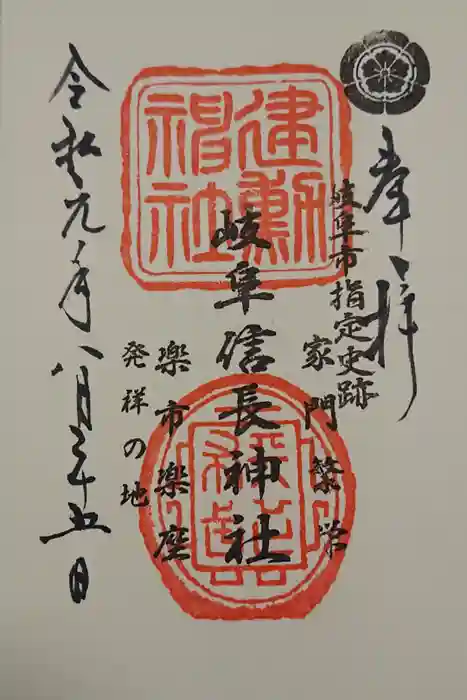 奉拝
岐阜市指定史跡
家門繁栄
岐阜信長神社
建勲神社
楽市楽座
発祥の地
令和元年八月二十五日